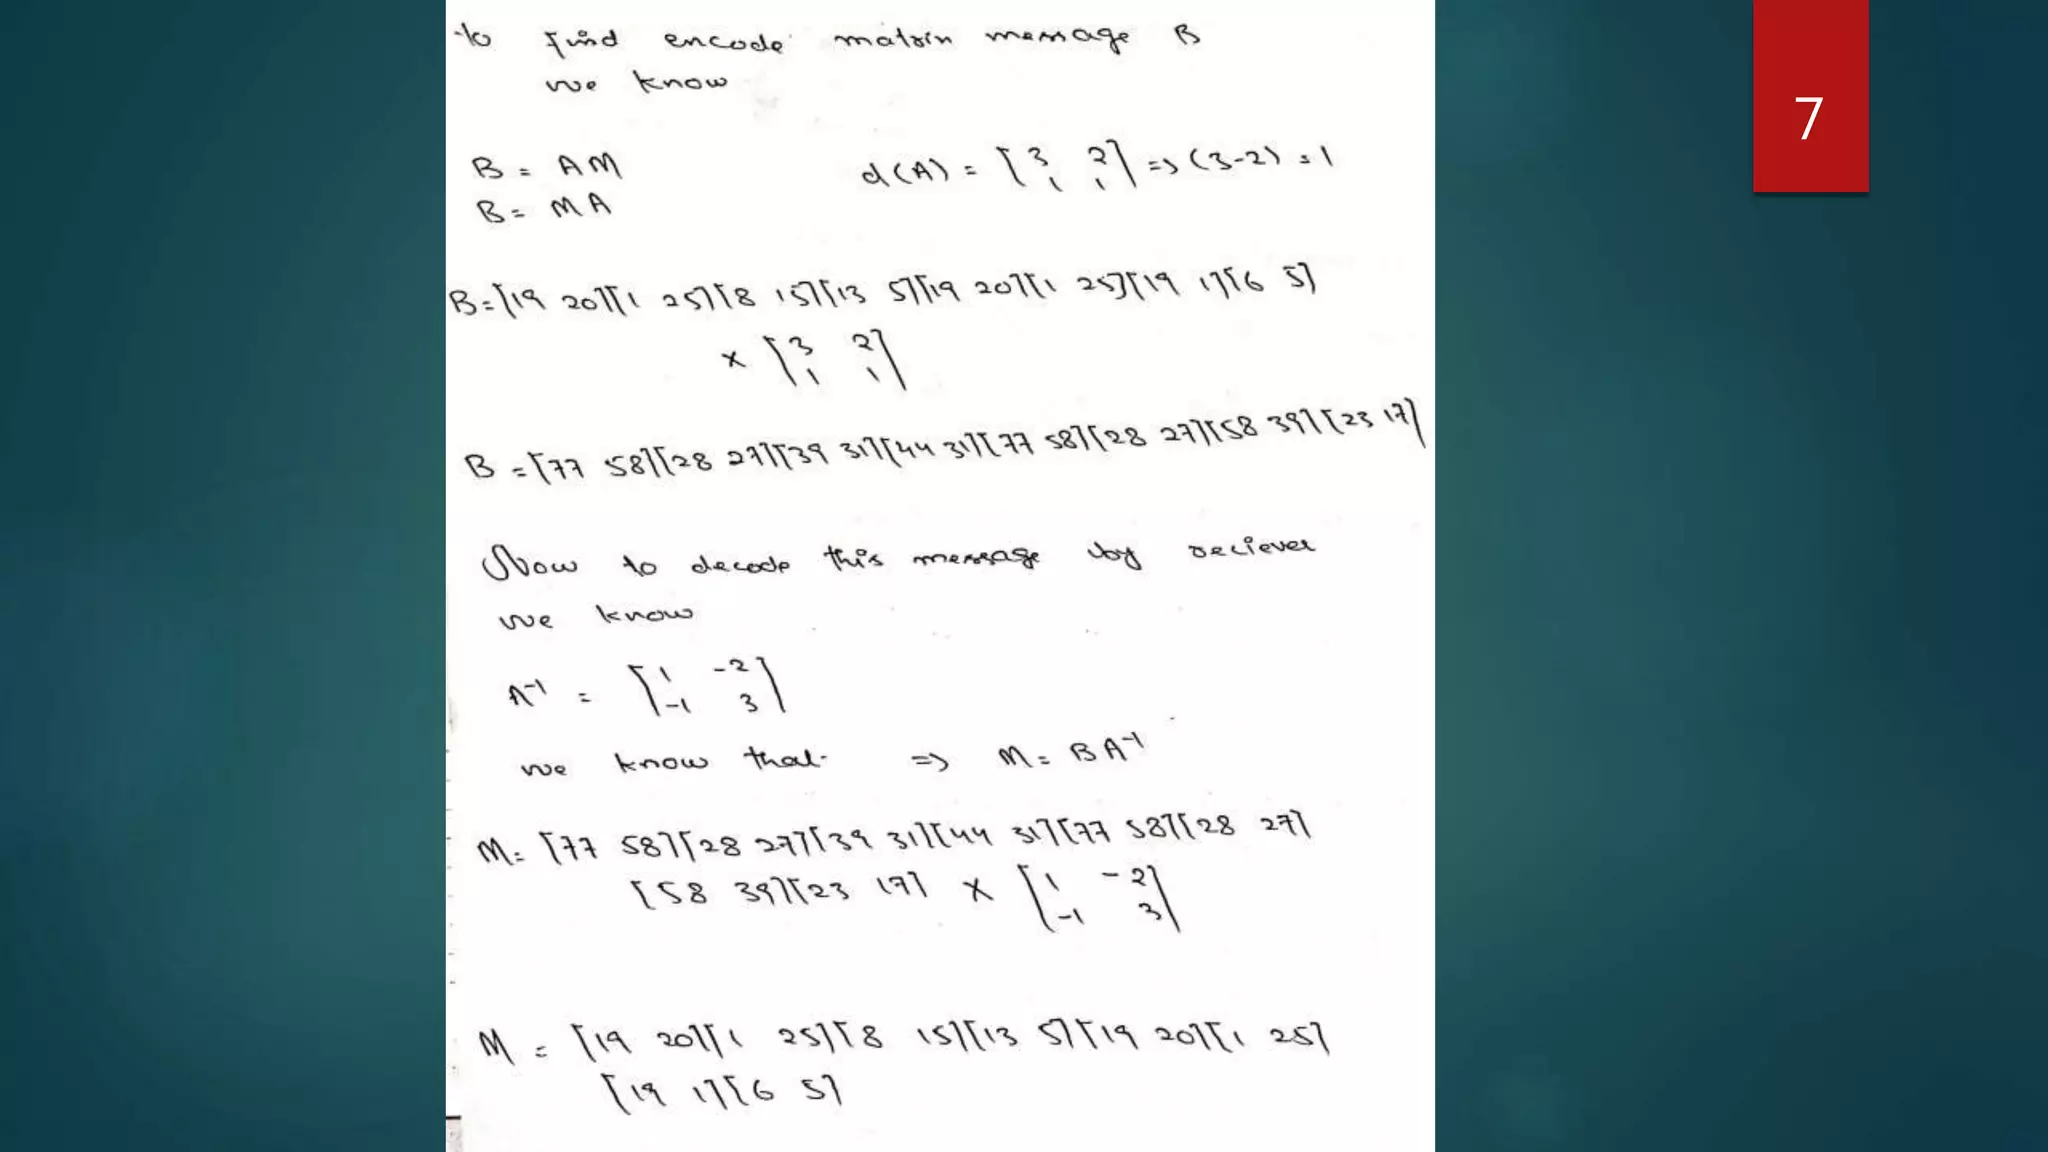 to find encode matrix message B
we know
B = AM        d(A) = [3 2; 1 1] => (3-2) = 1
B = MA
B = [19 20][1 25][8 15][13 5][19 20][1 25][19 1][6 5]
× [3 2; 1 1]
B = [77 58][28 27][39 31][44 31][77 58][28 27][58 39][23 17]
Now to decode this message by reciever
we know
A⁻¹ = [1 -2; -1 3]
we know that => M = BA⁻¹
M = [77 58][28 27][39 31][44 31][77 58][28 27]
[58 39][23 17] × [1 -2; -1 3]
M = [19 20][1 25][8 15][13 5][19 20][1 25]
[19 1][6 5]
7